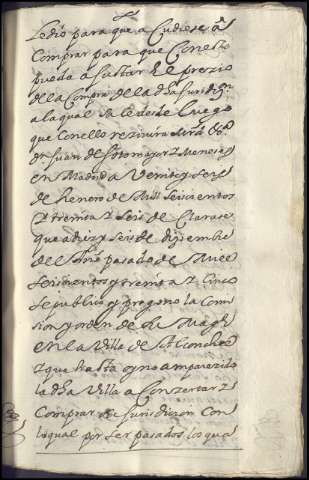 se dio para que acudiese a
Comprar para que Con esto
pueda a Justar El prezio
de la Compra de la dha Jurisdiçn
a la qual sale desde luego
que Con ello rezivira mrd
Dn Juan de sotomayor y Meneses
en Madrid a Veinte y seis
de henero de Mill seiscientos
y treinta y seis Declarase
que a diez y seis de diziembre
del año pasado de Mill
seiscientos y treinta y Cinco
se publico y pregono la Comi
sion y orden de su Magd
en la Villa de
y que hasta oy no a parezido
la dha Villa a Conzertar y
Comprar su Jurisdizion Con
lo qual por ser pasados los qua